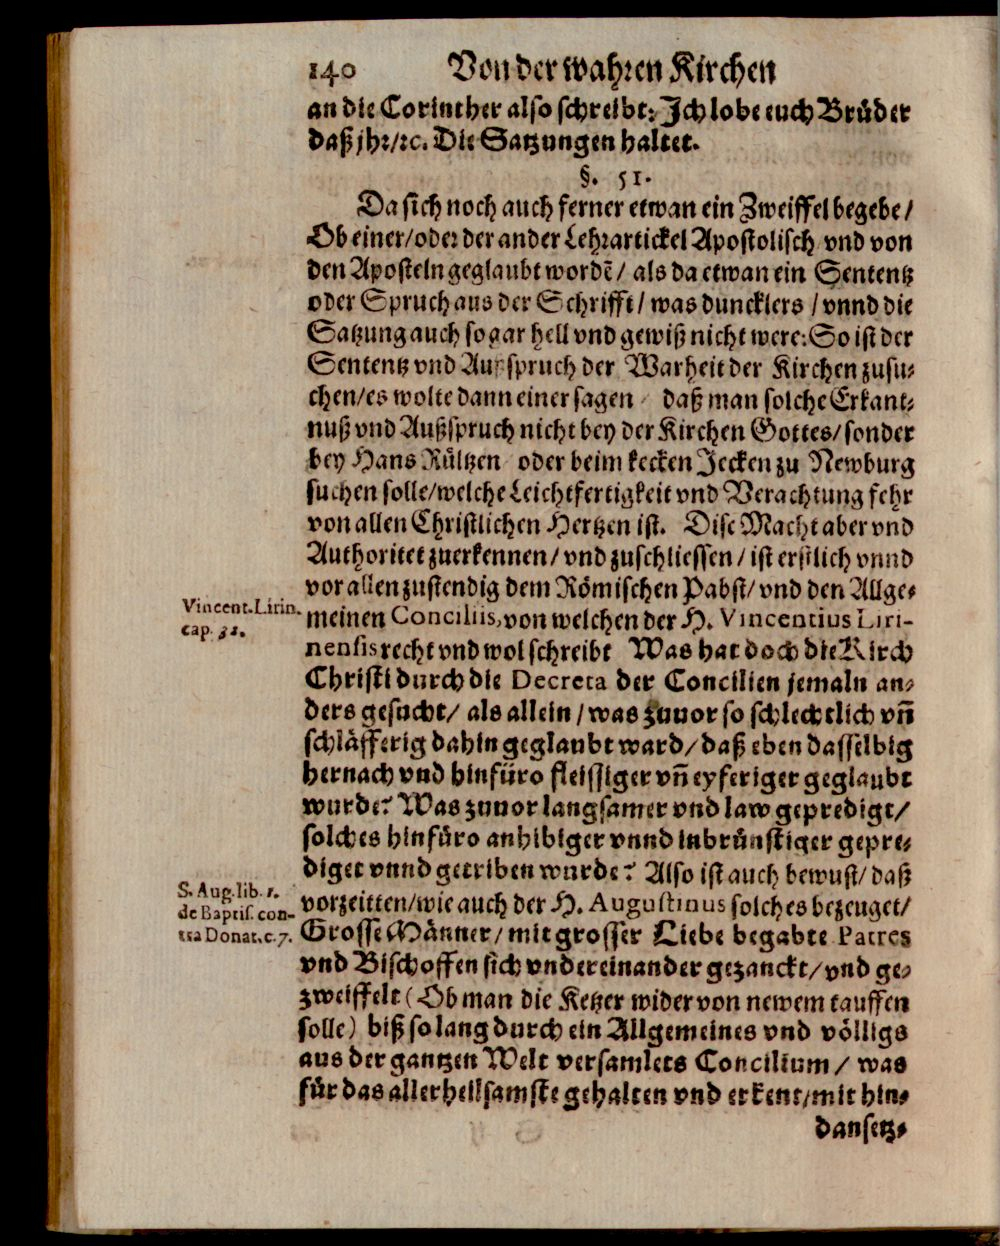 140 Von der wahren Kirchen
an die Corinther also schreibt: Jch lobe euch Brüder
daß jhr/ꝛc. Die Satzungen haltet.
§. 51.
Da sich noch auch ferner etwan ein Zweiffel begebe/
Ob einer/oder der ander Lehrartickel Apostolisch vnd von
den Aposteln geglaubt wordẽ/ als da etwan ein Sententz
oder Spruch aus der Schrifft/ was duncklers / vnnd die
Satzung auch so gar hell vnd gewiß nicht were: So ist der
Sententz vnd Außspruch der Warheit der Kirchen zusu-
chen/es wolte dann einer sagen daß man solche Erkant-
nuß vnd Außspruch nicht bey der Kirchen Gottes/sonder
bey Hans Rültzen oder beim kecken Jecken zu Newburg
suchen solle/welche Leichtfertigkeit vnd Verachtung fehr
von allen Christlichen Hertzen ist. Dise Macht aber vnd
Authoritet zuerkennen/ vnd zuschliessen/ ist erstlich vnnd
vor allen zustendig dem Römischen Pabst/ vnd den Allge-
Vincent. Lirin.
cap. 32.
meinen Conciliis, von welchen der H. Vincentius Liri-
nensis recht vnd wol schreibt Was hat doch die Kirch
Christi durch die Decreta der Concilien jemaln an-
ders gesucht/ als allein / was zuuor so schlechtlich vñ
schläfferig dahin geglaubt ward/ daß eben dasselbig
hernach vnd hinfüro fleissiger vñ eyferiger geglaubt
wurde? Was zuuor langsamer vnd law gepredigt/
solches hinfüro anhibiger vnnd inbrünstiger gepre-
diget vnnd getriben wurde? Also ist auch bewust/ daß
S. Aug. lib. 1.
de Baptis. con-
tra Donat. c. 7.
vorzeitten/wie auch der H. Augustinus solches bezeuget/
Grosse Männer/ mit grosser Liebe begabte Patres
vnd Bischoffen sich vndereinander gezanckt/ vnd ge-
zweiffelt (Ob man die Ketzer wider von newem tauffen
solle) biß so lang durch ein Allgemeines vnd völligs
aus der gantzen Welt versamlets Concilium / was
für das allerheilsamste gehalten vnd erkent/mit hin-
dansetz-